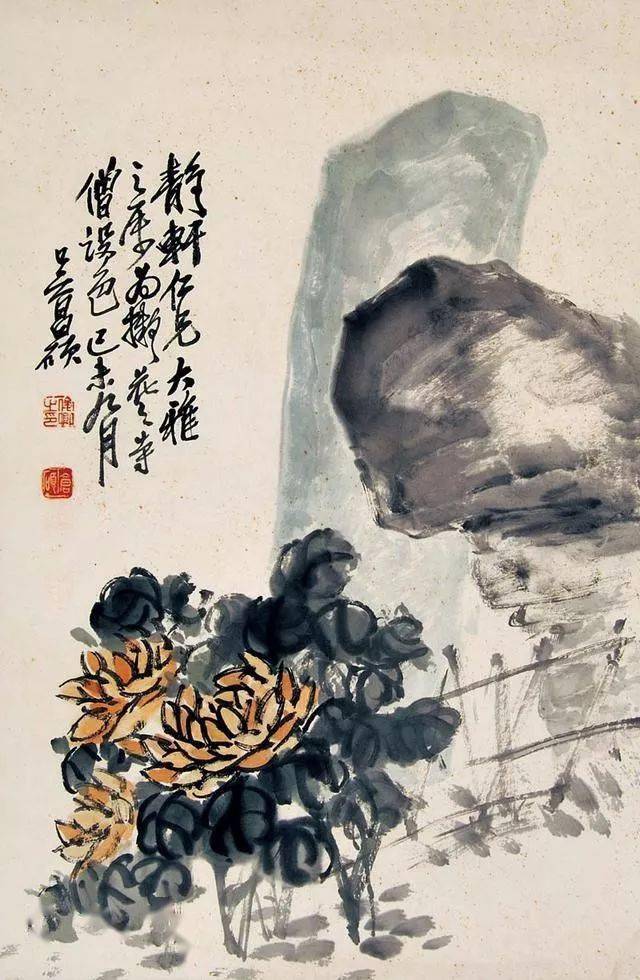 靜軒仁兄大雅
之屬為擬花之寺
僧設色己未九月
吳昌碩
俊卿之印
倉碩